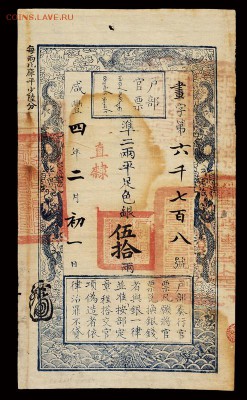 戶部官票
畫字第六千七百八號
準二兩平足色銀伍拾兩
直隸
咸豐四年二月初一日
每兩比庫平少陸分
戶部奏行官
票凡願將官
票兌換銀錢
者與銀一律
並准按部定
章程搭交官
項偽造者依
律治罪不貸